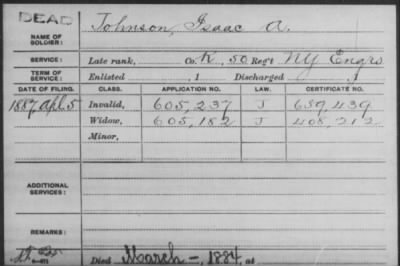 DEAD
NAME OF SOLDIER: Johnson, Isaac A.
SERVICE: Late rank, Co. K, 50 Reg't NY Engrs
TERM OF SERVICE: Enlisted , 1 Discharged , 1
DATE OF FILING. CLASS. APPLICATION NO. LAW. CERTIFICATE NO.
1887 Apl 5 Invalid, 605,237 J 659,439
Widow, 605,182 J 408,212
Minor,
ADDITIONAL SERVICES:
REMARKS:
Died March -, 1884, at